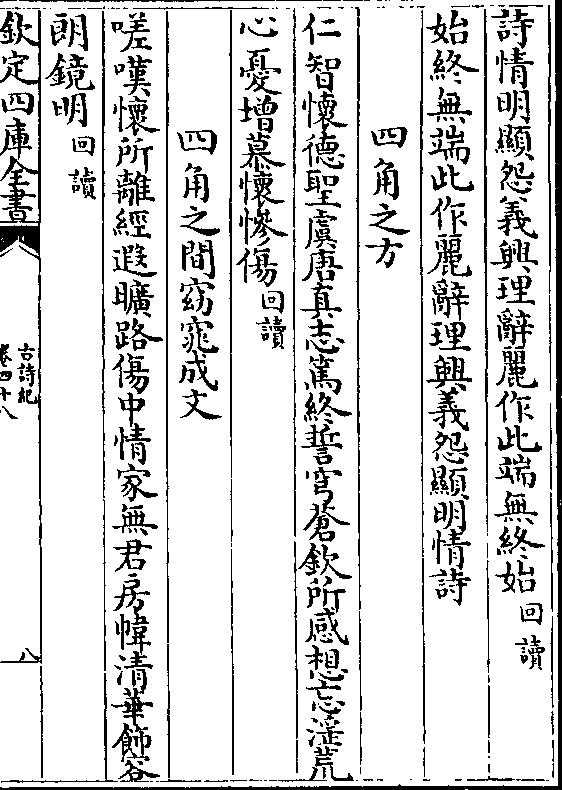 詩情明顯怨義興理辭麗作此端無終始回讀
始終無端此作麗辭理興義怨顯明情詩
四角之方
仁智懷德聖虞唐真志篤終誓穹蒼欽所感想忘淫荒
心憂增慕懷慘傷回讀
四角之間窈窕成文
嗟嘆懷所離經遐曠路傷中情家無君房幃清華飾容
朗鏡明回讀
欽定四庫全書
古詩紀
卷四十八
八